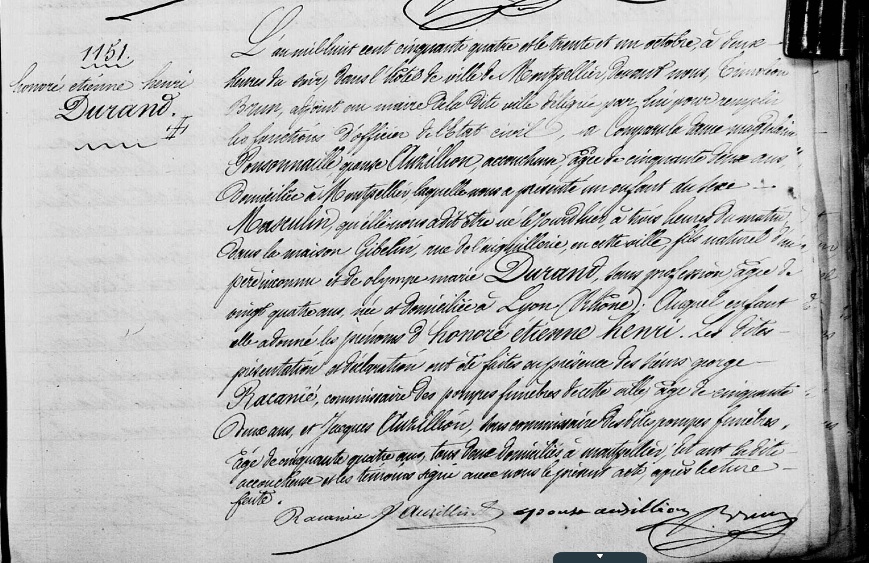 1151.
honoré etiénne henri
Durand.
L'an mil huit cent cinquante quatre et le trente et un octobre, à deux
heures du soir, dans l'hôtel de ville de Montpellier, devant nous,
Brun, adjoint au maire de la dite ville délégué par lui pour remplir
les fonctions d'officier de l'état civil, a comparu la dame
Ponsonnaille, épouse Auzillion, accoucheuse, âgée de cinquante deux ans
domiciliée à Montpellier, laquelle nous a présenté un enfant du sexe
Masculin, qu'elle nous a dit être né le jourd'hier, à trois heures du matin,
dans la maison Gibelin, rue de l'aiguillerie, en cette ville, fils naturel de
père inconnu et de olympe marie Durand, sans profession âgée de
vingt quatre ans, née et domiciliée à Lyon (Rhône). Auquel enfant
elle a donné les prénoms d'honoré etienne henri. Les dites
présentation et déclaration ont été faites en présence des sieurs george
Racanié, commissaire des pompes funèbres de cette ville, âgé de cinquante
deux ans, et Jacques Auzillion, sous commissaire des dites pompes funèbres,
âgé de cinquante quatre ans, tous deux domiciliés à montpellier, Et ont la dite
accoucheuse et les témoins signé avec nous le présent acte, après lecture
faite.
Racanié J Auzillion epouse auzillion Brun